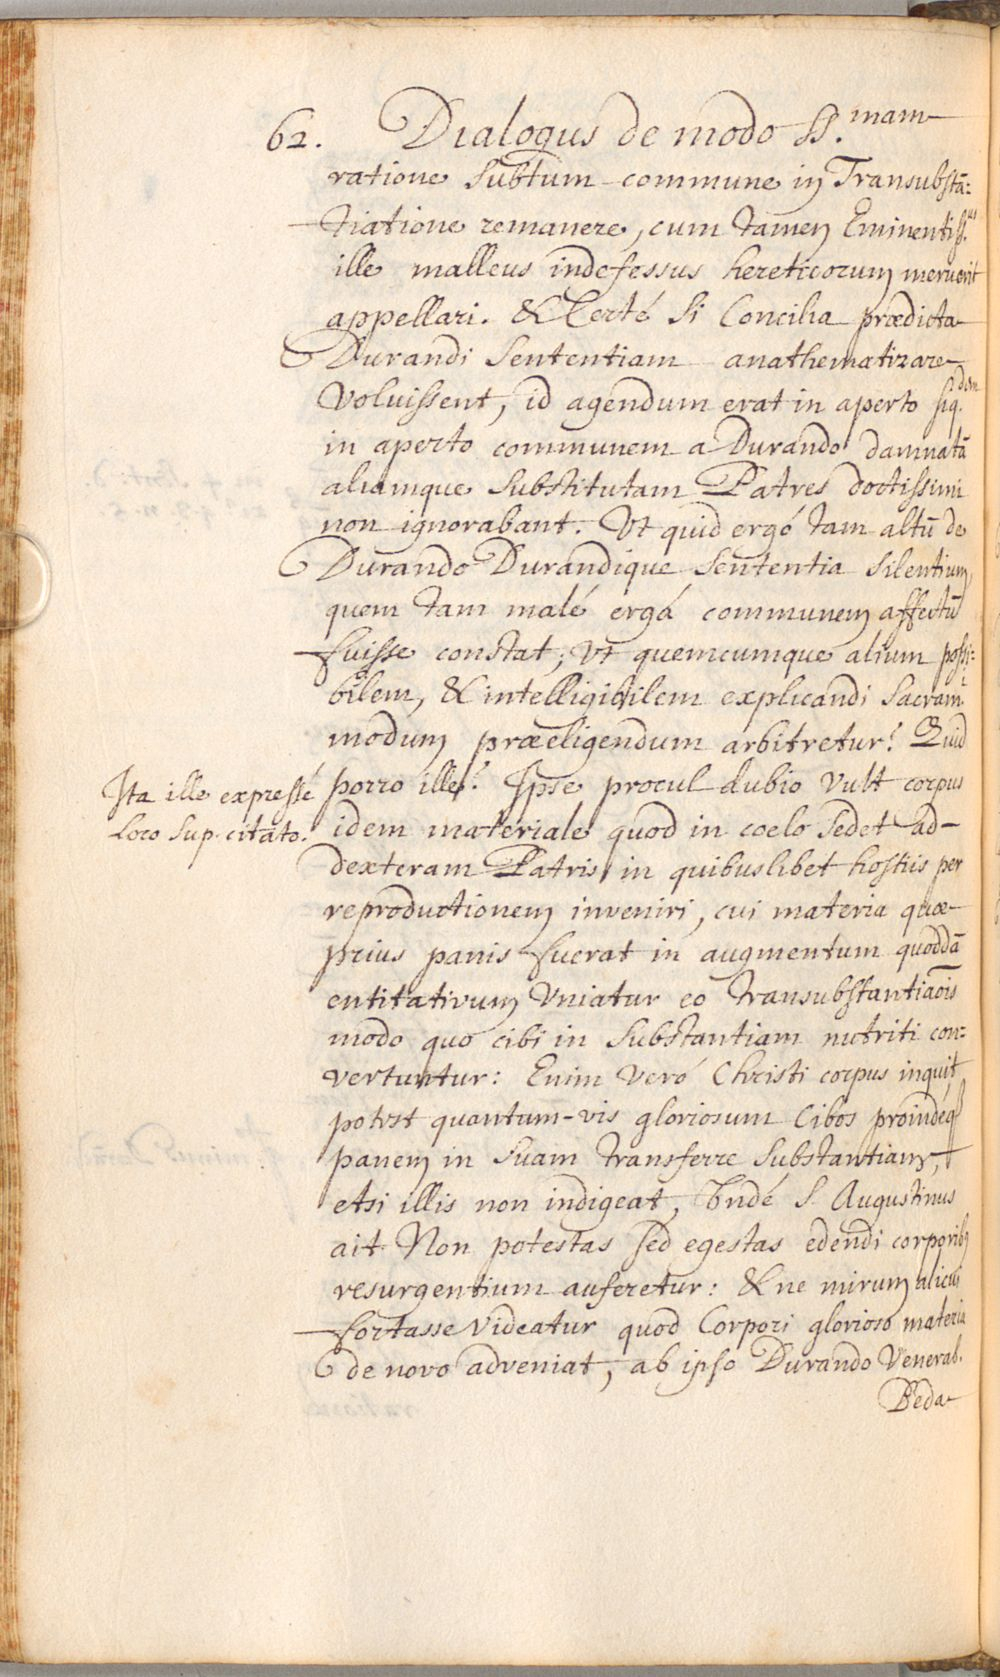 62. Dialogus de modo SS.mam
ratione subtum commune in Transubstā=
tiatione remanere, cum tamen Eminentiss.us
ille malleus indefessus hereticorum meruerit
appellari. & Certé si Concilia prædicta
Durandi sententiam anathematizare
voluissent, id agendum erat in aperto siq.dem
in aperto communem a Durando damnatā
aliamque substitutam Patres doctissimi
non ignorabant. Vt quid ergó tam altū de
Durando Durandique sententia silentium,
quem tam malé ergá communem affectū
fuisse constat; vt quemcumque alium possi=
bilem, & intelligibilem explicandi Sacram.i
modum præeligendum arbitretur? Quid
porro ille? Ipse procul dubio vult corpus
Ita ille expressé
loco sup. citato.
idem materiale quod in coelo sedet ad
dexteram Patris in quibuslibet hostiis per
reproductionem inveniri, cui materia quæ
prius panis fuerat in augmentum quoddā
entitativum vniatur eo transubstantiaōis
modo quo cibi in substantiam nutriti con=
vertuntur: Enim veró Christi corpus inquit
potest quantum-vis gloriosum cibos proindéq
panem in suam transferre substantiam,
etsi illis non indigeat, Vndé S. Augustinus
ait Non potestas sed egestas edendi corporib9
resurgentium auferetur: & ne mirum alicui
fortasse videatur quod Corpori glorioso materia
de novo adveniat, ab ipso Durando Venerab.
Beda